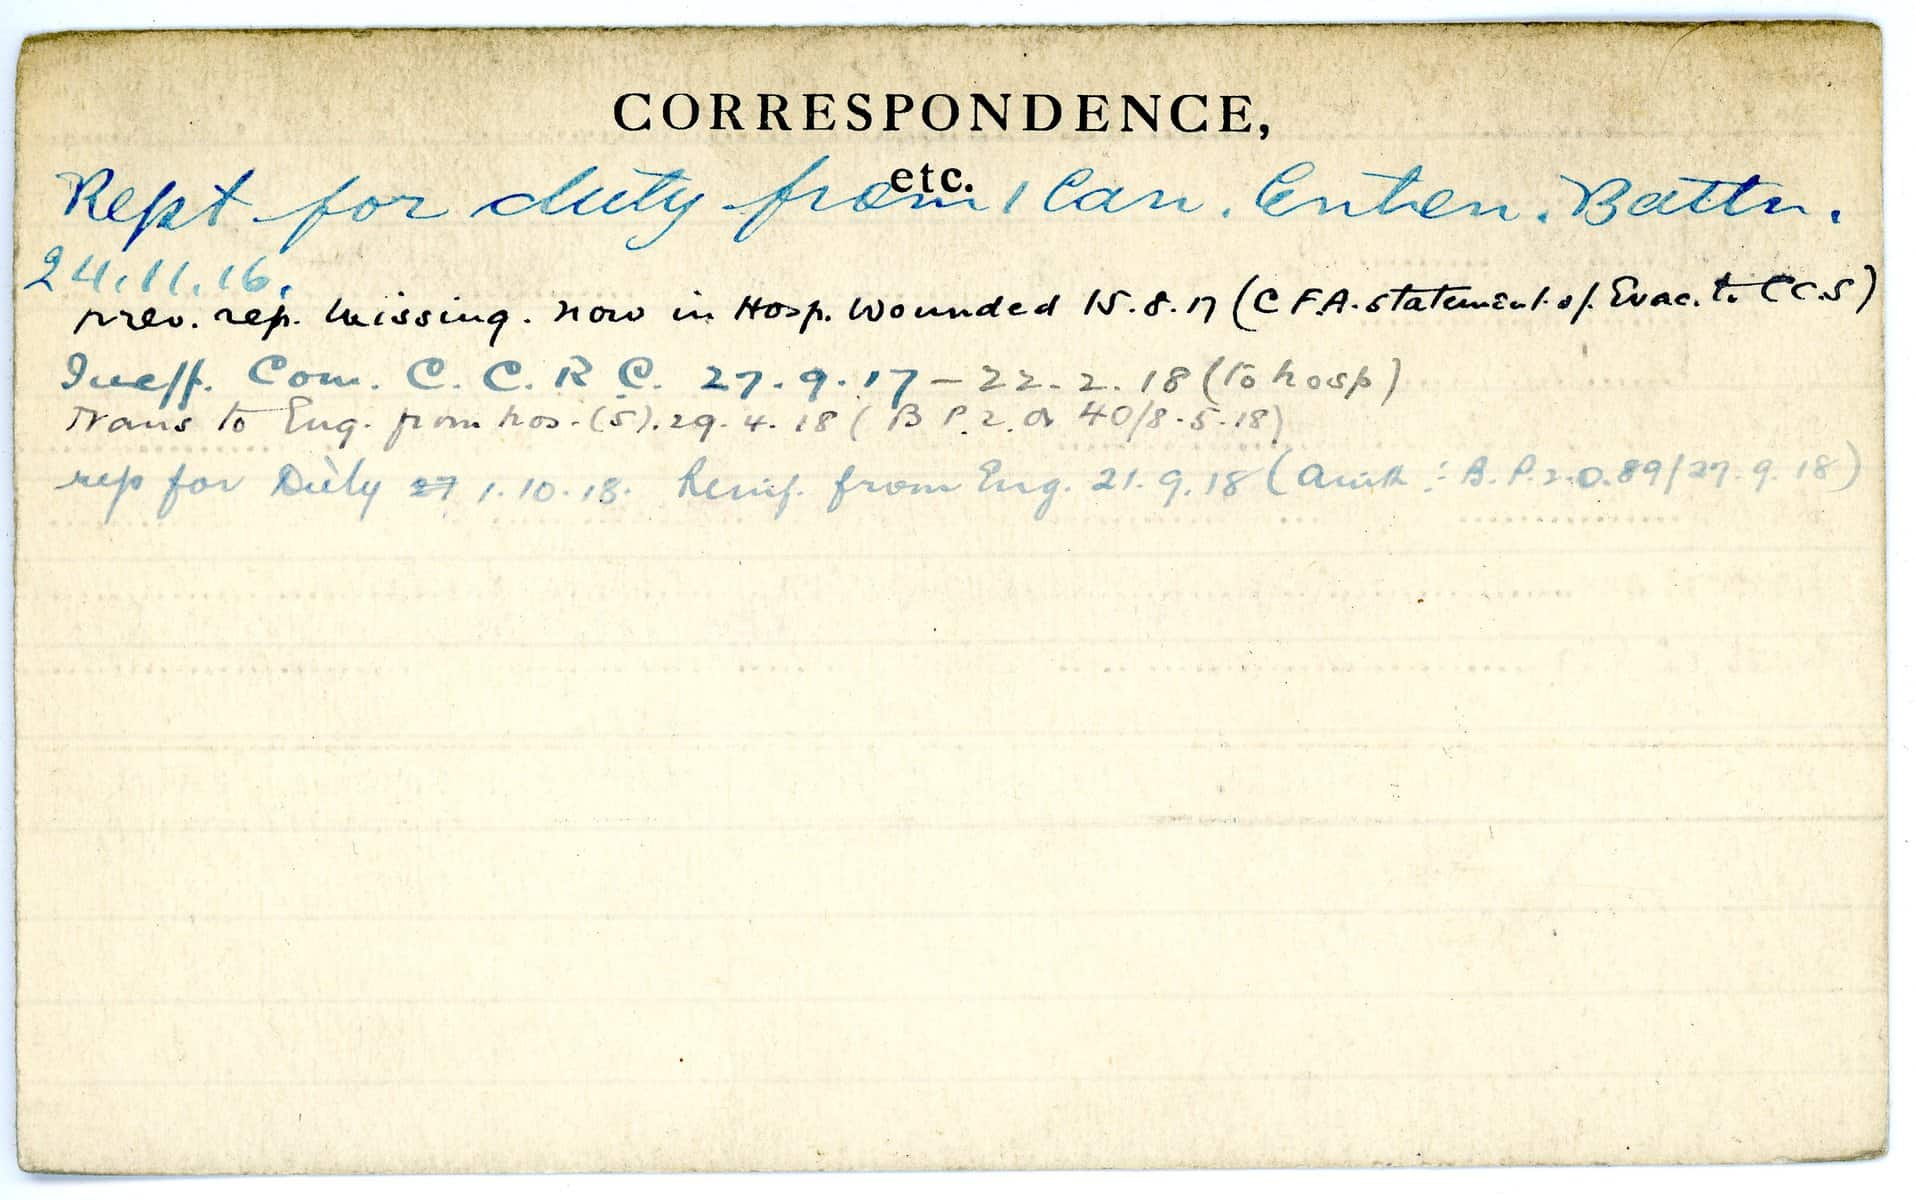 CORRESPONDENCE,
etc.
Rept for duty from 1 Can. Entren. Battn.
24.11.16.
prev. rep. Missing. now in Hosp. Wounded 15.8.17 (C F.A. statement of Evac. to CCS)
Ineff. Com. C. C. R C. 27.9.17 - 22.2.18 (to hosp)
trans to Eng. from hos. (S). 29.4.18 ( B P.2. O 40/8.5.18)
rep for Duty 27 1.10.18. Reinf. from Eng. 21.9.18 (Auth: B.P.2.O.89/27.9.18)